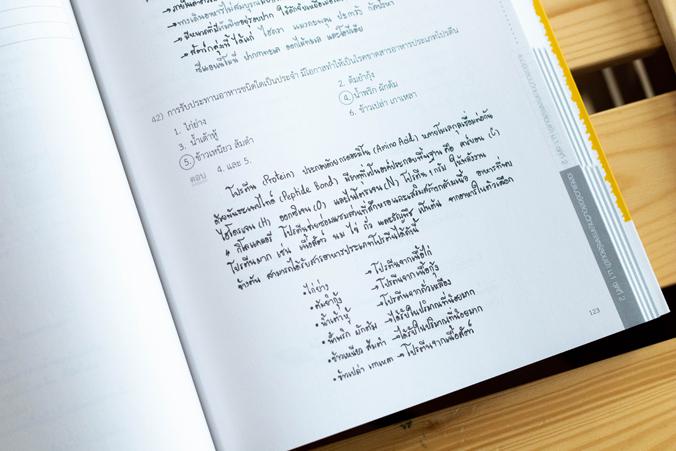 • ภายในลำตัว
→ ทางเดินอาหารไม่สมบูรณ์
→ มีเข็มพิษที่
→ สัตว์กลุ่มนี้ ได้แก่ ไฮดรา แมงกะพรุน ปะการัง กัลปังหา
ซีแอนนีโมนี ปากกาทะเล ดอกไม้ทะเล และโอบีเลีย
42) การรับประทานอาหารชนิดใดเป็นประจำ มีโอกาสทำให้เป็นโรคขาดสารอาหารประเภทโปรตีน
1. ไก่ย่าง 2. ต้มยำกุ้ง
3. น้ำเต้าหู้ 4. น้ำพริก ผักต้ม
5. ข้าวเหนียว ส้มตำ 6. ข้าวเปล่า เกาเหลา
ตอบ 4. และ 5.
โปรตีน (Protein) ประกอบด้วยกรดอะมิโน (Amino Acid) มาหลายโมเลกุลเชื่อมต่อกัน
ด้วยพันธะเพปไทด์ (Peptide Bond) มีธาตุที่เป็นองค์ประกอบพื้นฐาน คือ คาร์บอน (C)
ไฮโดรเจน (H) ออกซิเจน (O) และไนโตรเจน (N) โปรตีน 1 กรัม ให้พลังงาน
4 กิโลแคลอรี โปรตีนช่วยซ่อมแซมส่วนที่สึกหรอและเสริมสร้างกล้ามเนื้อ อาหารที่พบ
โปรตีนมาก เช่น เนื้อสัตว์ นม ไข่ ถั่ว และธัญพืช เป็นต้น จากอาหารในตัวเลือก
ข้างต้น สามารถได้รับสารอาหารประเภทโปรตีนได้ดังนี้
• ไก่ย่าง → โปรตีนจากเนื้อไก่
• ต้มยำกุ้ง → โปรตีนจากเนื้อกุ้ง
• น้ำเต้าหู้ → โปรตีนจากถั่วเหลือง
• น้ำพริก ผักต้ม → ได้รับในปริมาณที่น้อยมาก
• ข้าวเหนียว ส้มตำ → ได้รับในปริมาณที่น้อยมาก
• ข้าวเปล่า เกาเหลา → โปรตีนจากเนื้อสัตว์
123
ม.1 ชุดที่ 2